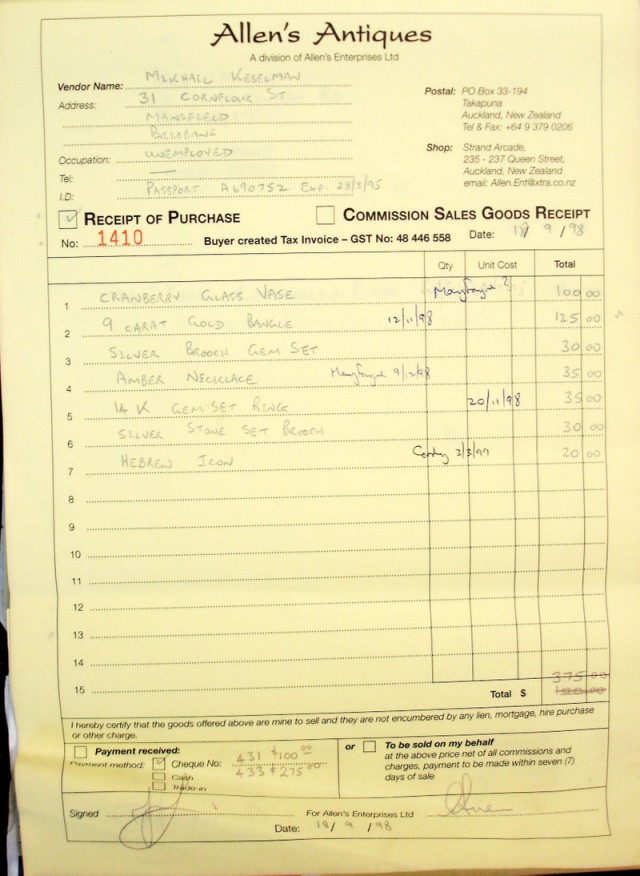 Allen's Antiques
A division of Allen's Enterprises Ltd
Vendor Name: MIKHAIL KESELMAN
Address: 31 CORNFLOUR ST
MANSFIELD
BRISBANE
Occupation: UNEMPLOYED
Tel: —
I.D: PASSPORT A690752 EXP. 28/3/95
Postal: PO Box 33-194
Takapuna
Auckland, New Zealand
Tel & Fax: +64 9 379 0206
Shop: Strand Arcade,
235 - 237 Queen Street,
Auckland, New Zealand
email: Allen.Ent@xtra.co.nz
RECEIPT OF PURCHASE
COMMISSION SALES GOODS RECEIPT
No: 1410 Buyer created Tax Invoice – GST No: 48 446 558 Date: 18/ 9 /98
Qty Unit Cost Total
1 CRANBERRY GLASS VASE 100 00
2 9 CARAT GOLD BANGLE 12/11/98 125 00
3 SILVER BROOCH GEM SET 30 00
4 AMBER NECKLACE 9/12/98 35 00
5 14 K GEM SET RING 20/11/98 35 00
6 SILVER STONE SET BROOCH 30 00
7 HEBREW ICON 3/3/99 20 00
8
9
10
11
12
13
14
375.00
15 Total $
I hereby certify that the goods offered above are mine to sell and they are not encumbered by any lien, mortgage, hire purchase
or other charge.
Payment received:
Payment method: Cheque No: 431 $100 00
Cash 433 $275 00
Trade-in
or To be sold on my behalf
at the above price net of all commissions and
charges, payment to be made within seven (7)
days of sale
Signed
For Allen's Enterprises Ltd
Date: 18/ 9 /98